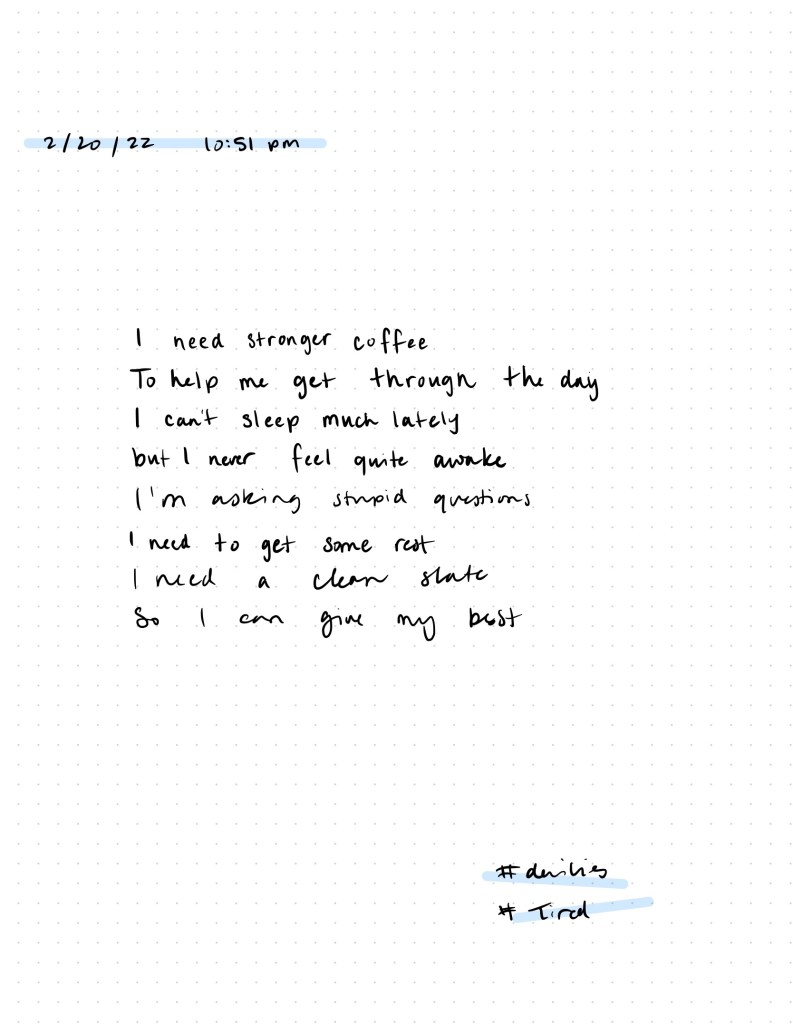 2/20/22 10:51 pm
I need stronger coffee
To help me get through the day
I can't sleep much lately
but I never feel quite awake
I'm asking stupid questions
I need to get some rest
I need a clean slate
So I can give my best
#dailies
# Tired